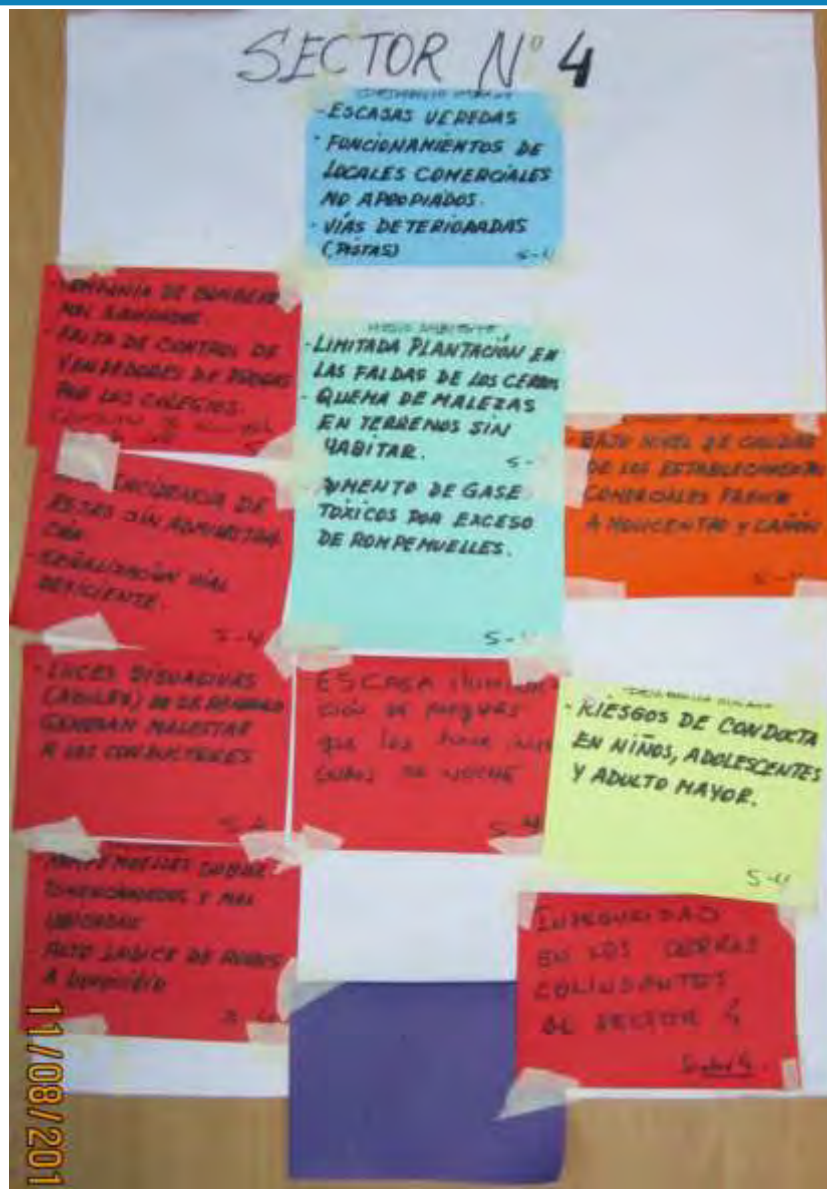 SECTOR Nº 4
- ESCASAS VEREDAS
- FUNCIONAMIENTOS DE
LOCALES COMERCIALES
NO APROPIADOS.
- VÍAS DETERIORADAS
(PISTAS)
S-4
MAL
- FALTA DE CONTROL DE
VENDEDORES DE DROGAS
POR LOS COLEGIOS.
MEDIO AMBIENTE
- LIMITADA PLANTACIÓN EN
LAS FALDAS DE LOS CERROS
- QUEMA DE MALEZAS
EN TERRENOS SIN
HABITAR.
S-
- AUMENTO DE GASES
TÓXICOS POR EXCESO
DE ROMPEMUELLES.
S-4
- BAJO NIVEL DE CALIDAD
DE LOS ESTABLECIMIENTOS
COMERCIALES FRENTE
A MOLICENTRO Y CAÑÓN
S-4
DE
SIN
- SEÑALIZACIÓN VIAL
DEFICIENTE.
S-4
- LUCES DISUASIVAS
(AZULES) DE SERENAZGO
GENERAN MALESTAR
A LOS CONDUCTORES
S-4
ESCASA ILUMINA-
CIÓN DE PARQUES
que los hace inse
guros DE NOCHE
S-4
- RIESGOS DE CONDUCTA
EN NIÑOS, ADOLESCENTES
Y ADULTO MAYOR.
S-4
ROMPEMUELLES SOBRE
DIMENSIONADOS Y MAL
UBICADOS
- ALTO INDICE DE ROBOS
A DOMICILIO
S-4
INSEGURIDAD
EN LOS CERROS
COLINDANTES
AL SECTOR 4
Sector 4.
11/08/201